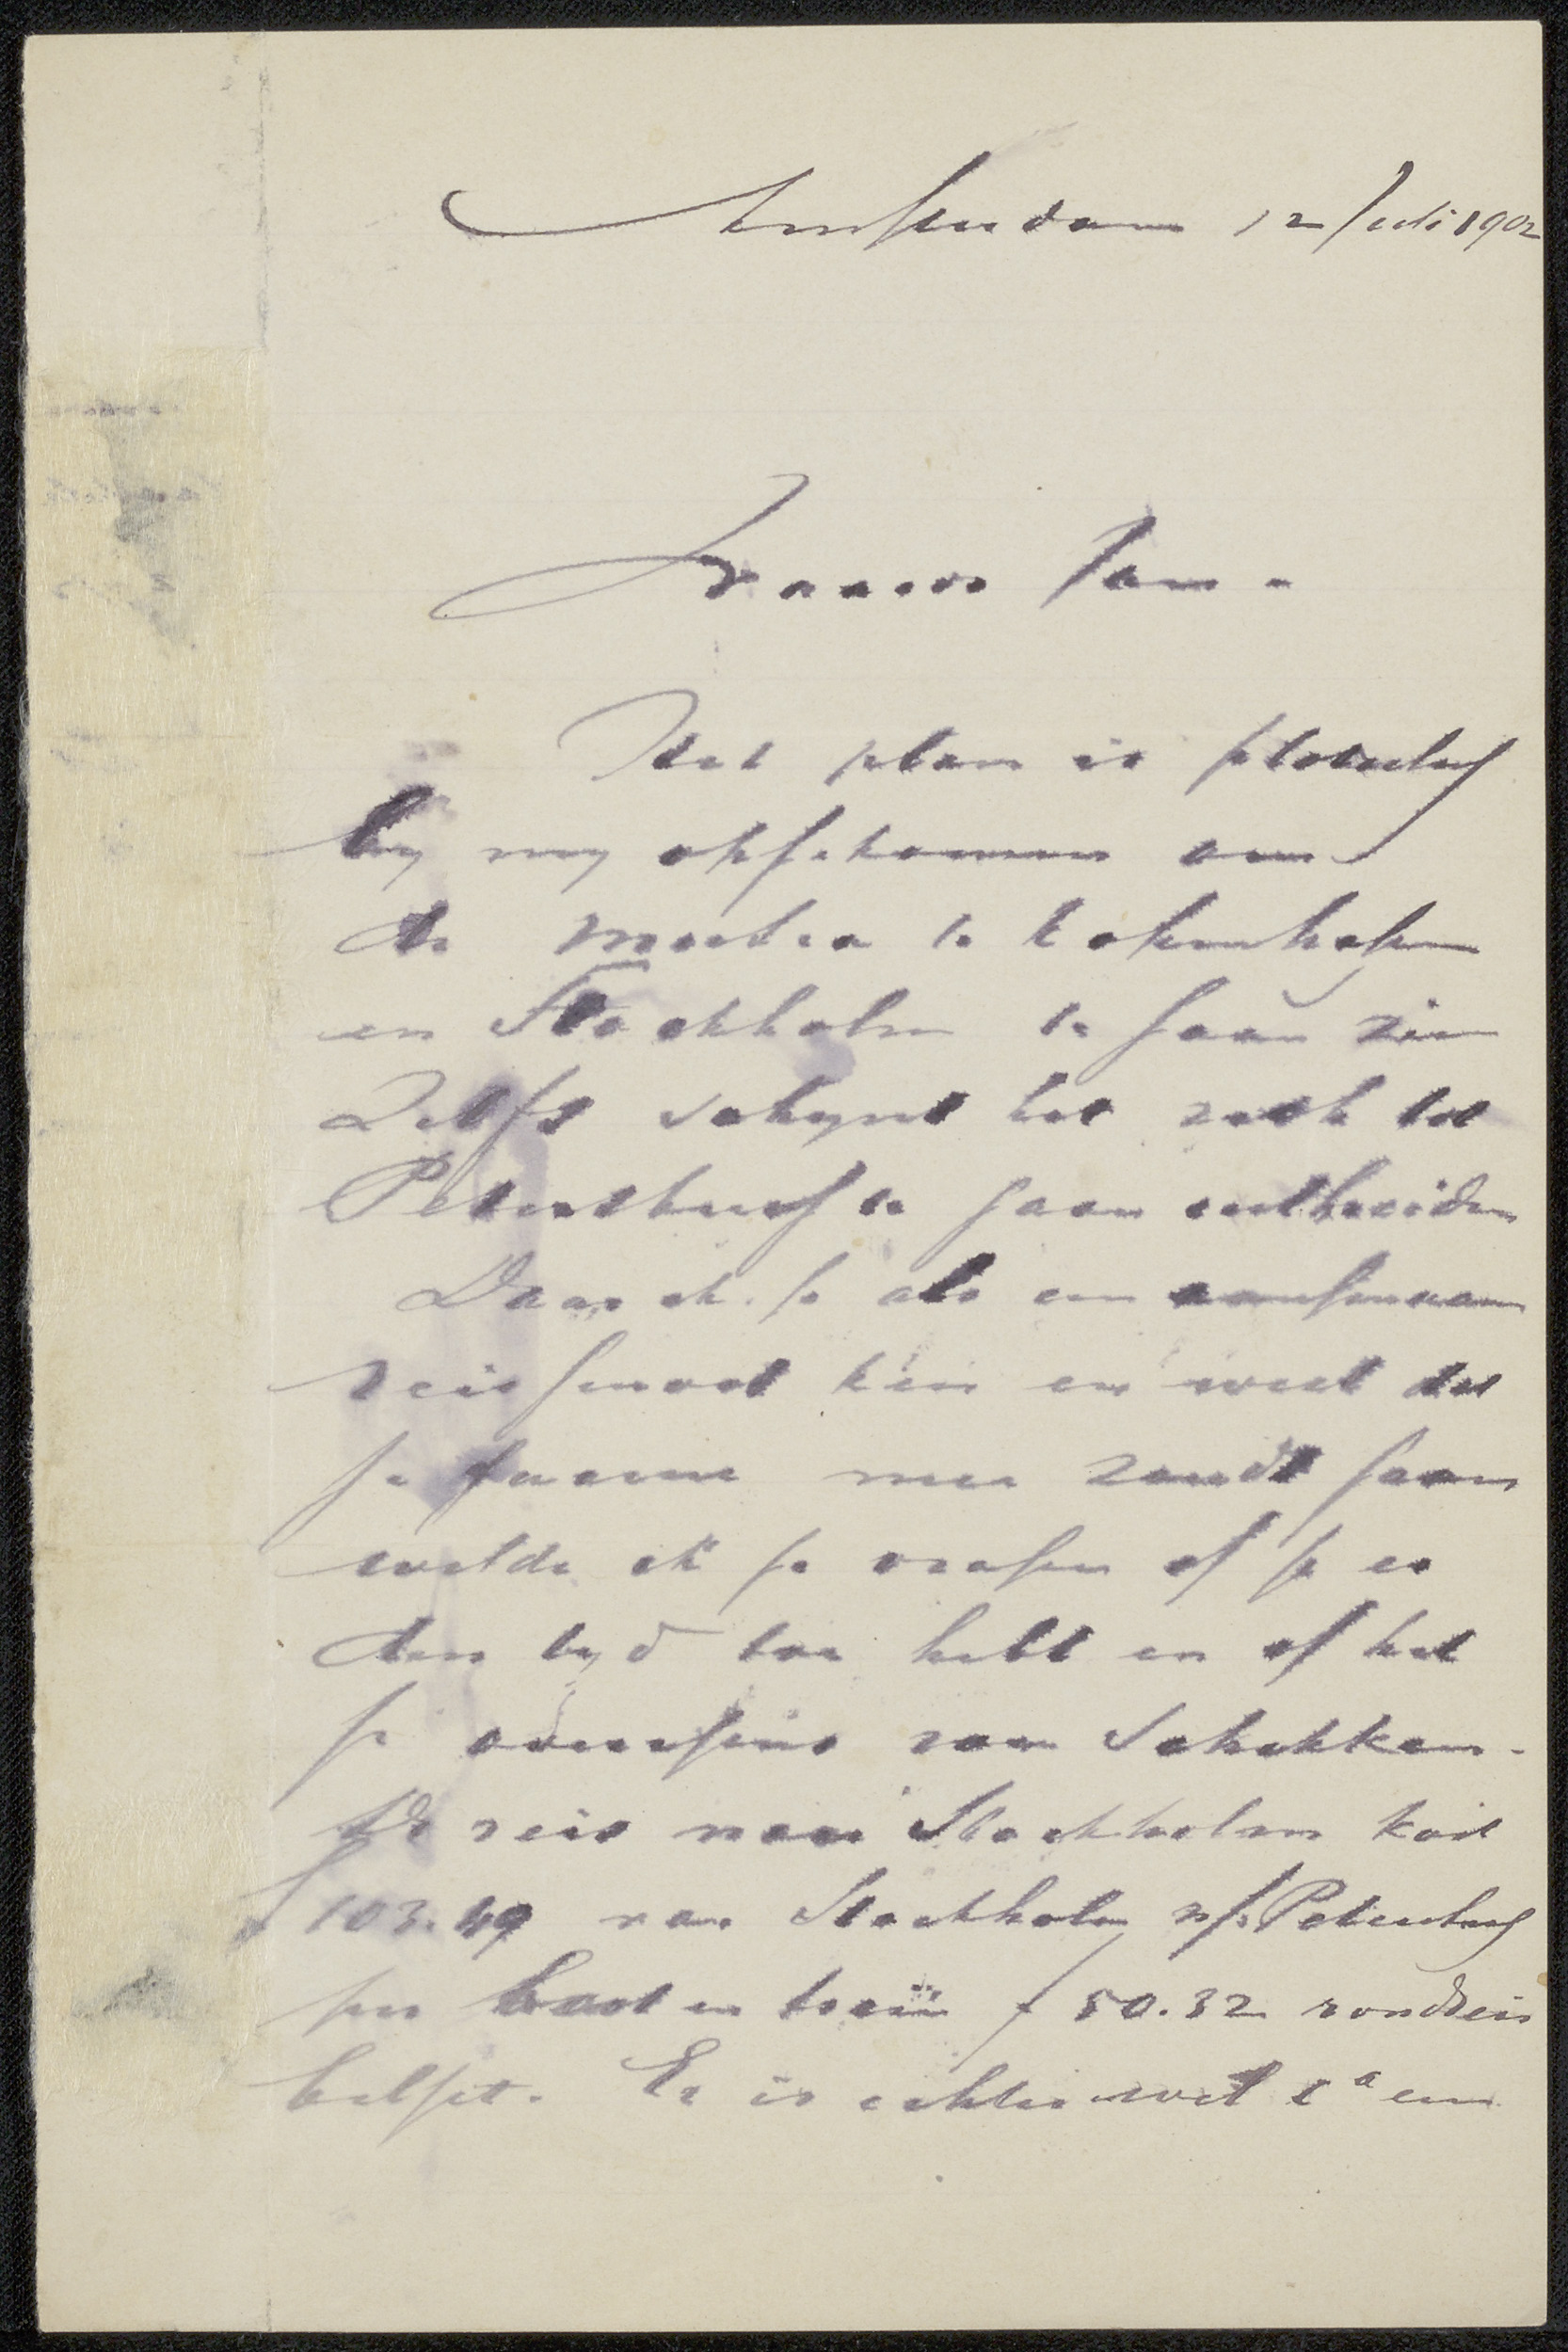 Amsterdam 12 Juli 1902
Jan.
Het plan is plotseling
by my opgekomen om
de musea te Kopenhagen
en Stockholm te gaan zien
Zelfs schynt het zich tot
Petersburg te gaan uitbreiden
Daar ik je als een aangenaam
reisgenoot ken en weet dat
je gaarne mee zoudt gaan
wilde ik je vragen of je er
den tyd toe hebt en of het
je overigens zou schikken.
De reis naar Stockholm kost
f 103.49 van Stockholm Petersburg
per boot en trein f 50.32 rondreis
biljet. Er is echter wel een